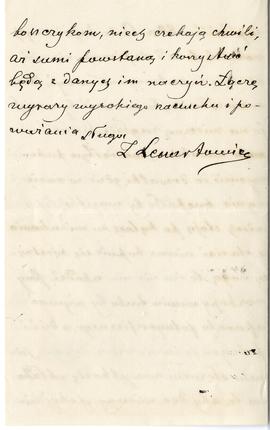 towczykom, niech czekają chwili,
aż sami powstaną i korzystać
będą z danych im narzędzi. Łączę
wyrazy wysokiego szacunku i po-
ważania sługa
T Lenartowicz